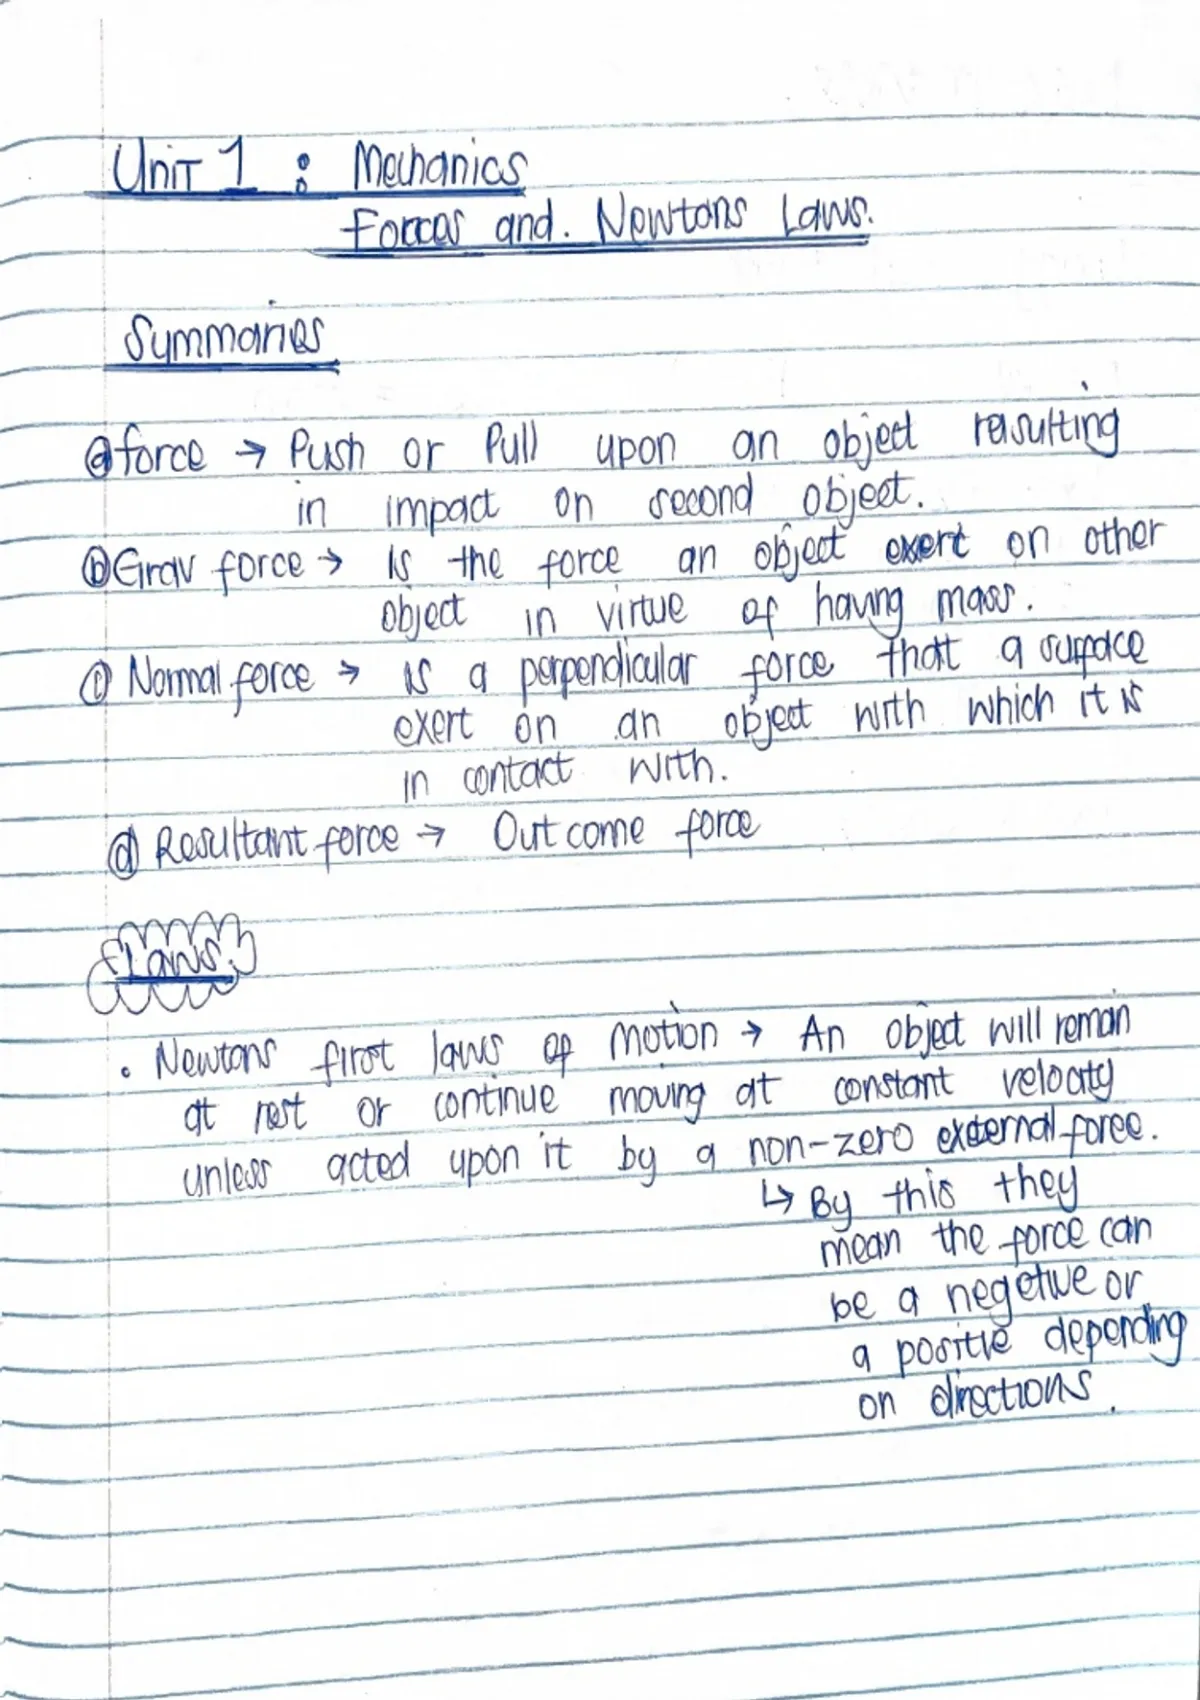 Unit 1 : Mechanics
Forces and. Newtons Laws.
Summaries
ⓐ force → Push or Pull upon an object resulting
in impact on second object.
ⓑ Grav force → is the force an object exert on other
object in virtue of having mass.
ⓒ Normal force → is a perpendicular force that a surface
exert on an object with which it is
in contact with.
ⓓ Resultant force → Out come force
Laws.
• Newtons first laws of motion → An object will remain
at rest or continue moving at constant velocity
unless acted upon it by a non-zero external force.
↳ By this they
mean the force can
be a negetive or
a positve depending
on directions.